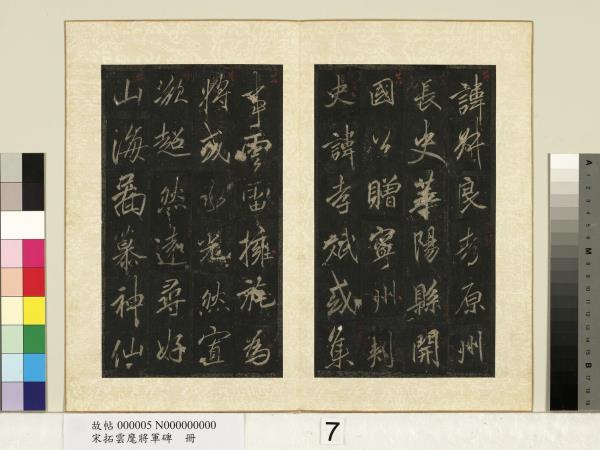 諱叔良考原州
長史華陽縣開
國公贈寧州刺
史諱孝斌或集
事雲雷擁旄為
將或然宣
超然遠尋好
山海圖慕神仙
故帖 000005 N000000000
宋拓雲麾將軍碑 冊
7
A
M
B